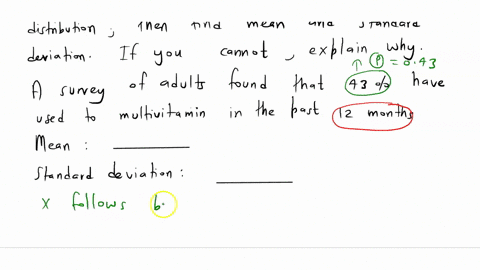 distribution, then find mean and standard
deviation. If you cannot, explain why.
↑ p = 0.43
A survey of adults found that 43 % have
used to multivitamin in the past 12 months
Mean : ________
Standard deviation : ________
x follows b